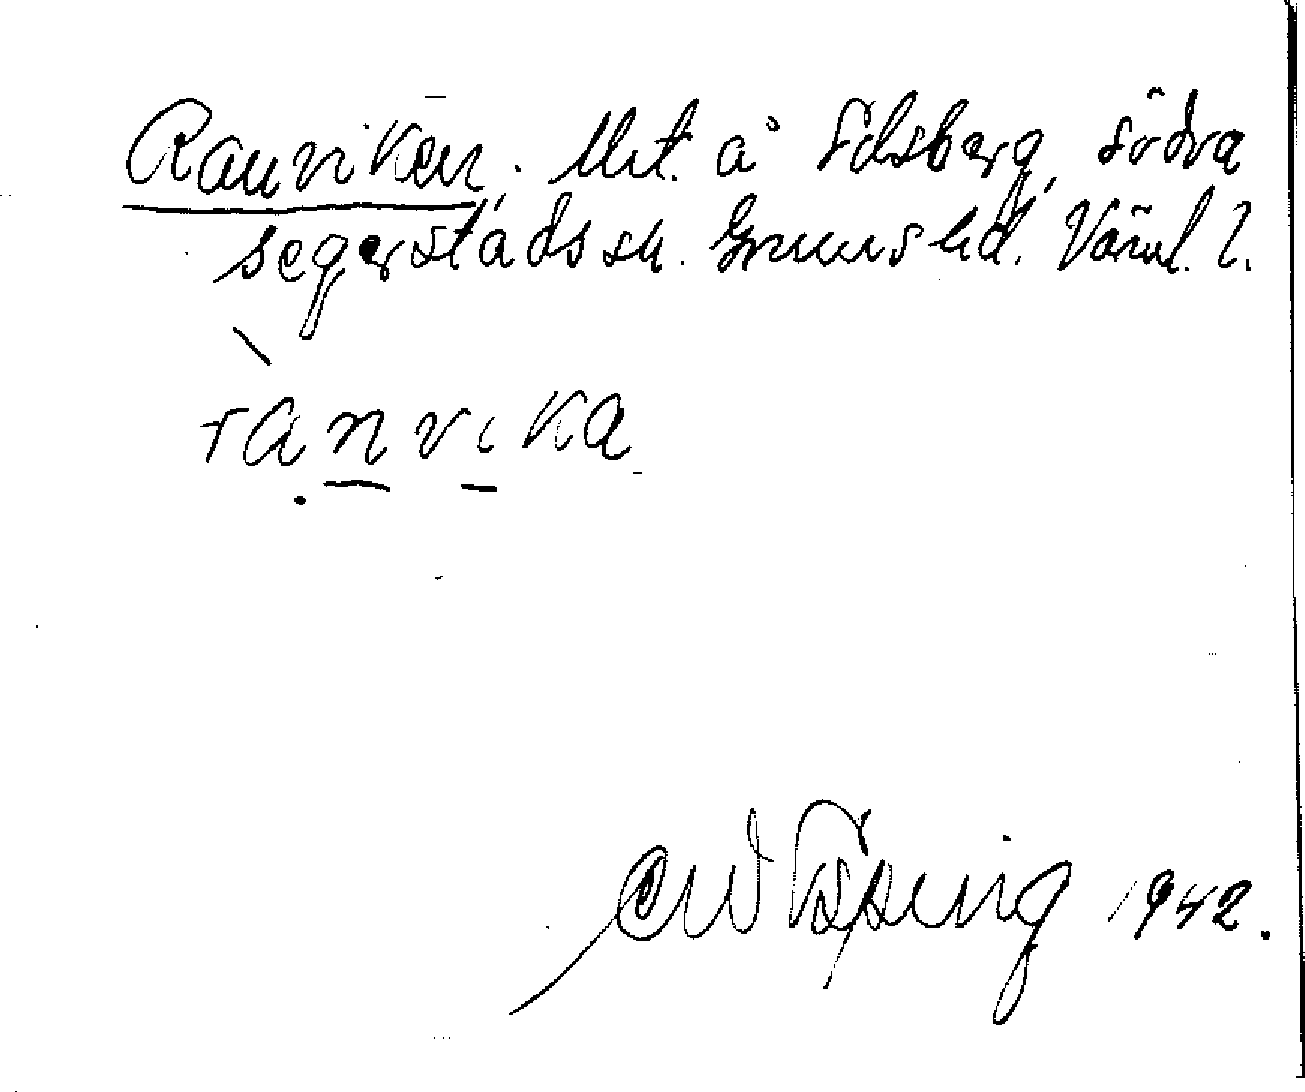 Ranviken. Mit. å Edsberg, södra
segerstads sn. Grums hd. Värml. l.
ranvika
1942.